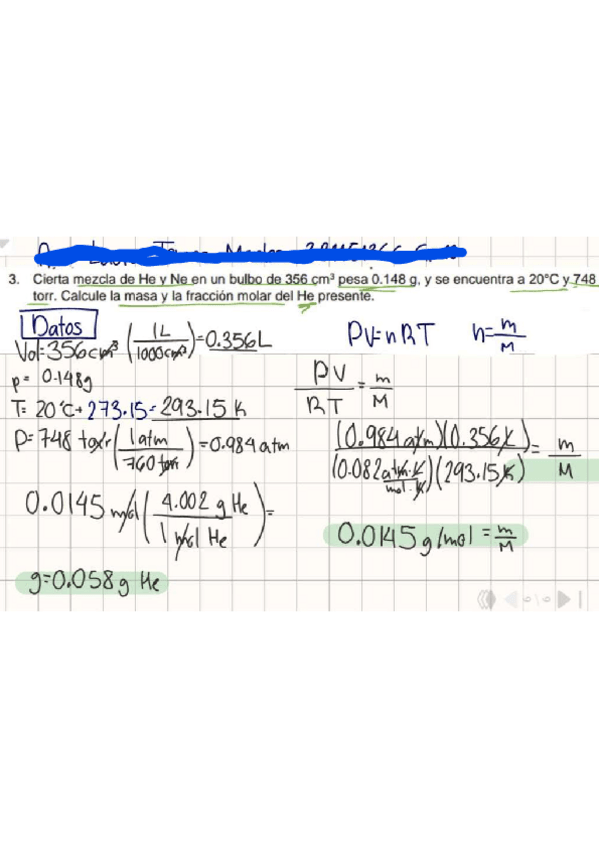 3. Cierta mezcla de He y Ne en un bulbo de 356 cm³ pesa 0.148 g, y se encuentra a 20°C y 748
torr. Calcule la masa y la fracción molar del He presente.
Datos
Vol=356cm³ (1L/1000cm³)=0.356L
p= 0.148g
T= 20°C+273.15=293.15 K
P=748 torr(1atm/760torr)=0.984atm
0.0145 mol(4.002 g He/1 mol He)=
g=0.058g He
PV=nRT n=m/M
PV/RT=m/M
(0.984atm)(0.356L)/(0.082atm·L/mol·K)(293.15K)=m/M
0.0145g/mol=m/M